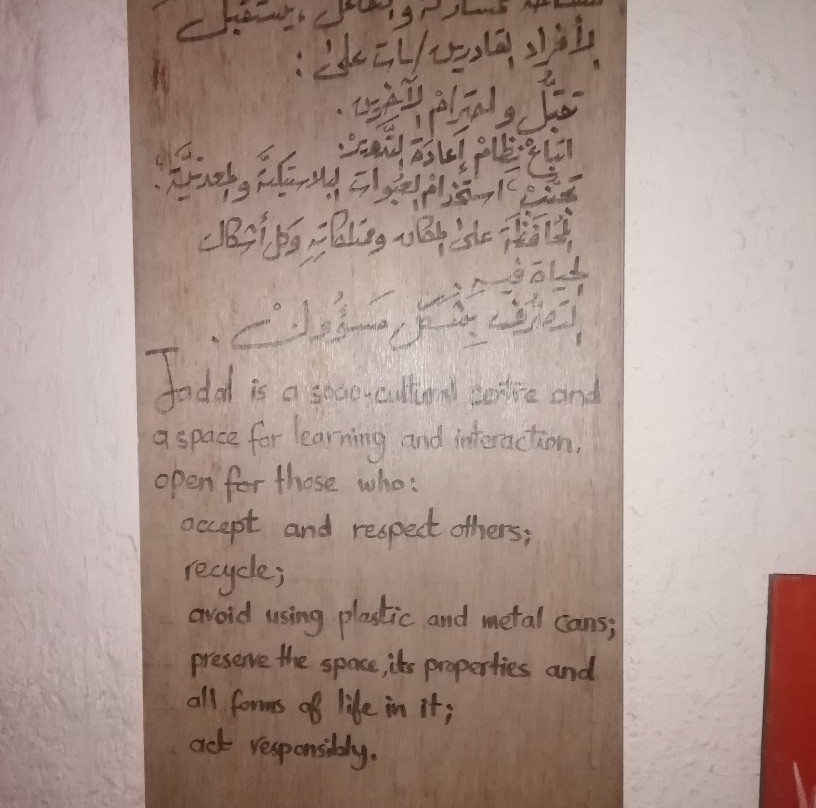 مساحة لمشاركة والتفاعل، يستقبل
الأفراد القادرين/ات على:
تقبُّل واحتِرامْ الآخرين.
اتباعْ نِظامْ إعادَة التَّدوير:
تجنُّبْ استخدامْ العبوات البلاستيكيَّة والمعدنيَّة:
المُحافَظَة على المكان وممتلكاتِهِ وكل أشكال
الحياة فيه.
التصرُّف بِشكل مَسؤُول.
Jadal is a socio-cultural centre and
a space for learning and interaction.
open for those who:
accept and respect others;
recycle;
avoid using plastic and metal cans;
preserve the space, its properties and
all forms of life in it;
act responsibly.